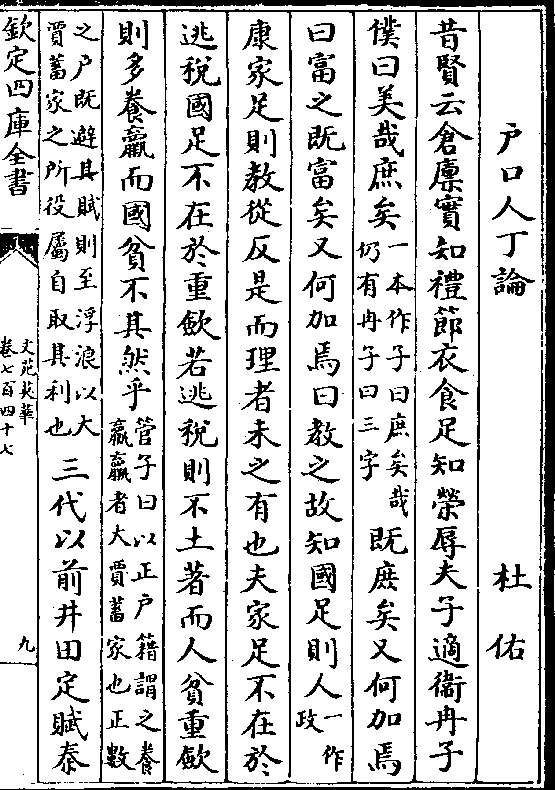 户口人丁論　杜佑
昔賢云倉廩實知禮節衣食足知榮辱夫子適衞冉子
僕曰美哉庶矣一本作子曰庶矣哉仍有冉子曰三字既庶矣又何加焉
曰富之既富矣又何加焉曰教之故知國足則人一作政
康家足則教從反是而理者未之有也夫家足不在於
逃稅國足不在於重歛若逃稅則不土著而人貧重歛
則多養羸而國貧不其然乎管子曰以正户籍謂之養羸羸者大賈蓄家也正數
之户既避其賦則至浮浪以大賈蓄家之所役屬自取其利也三代以前井田定賦泰
欽定四庫全書
文苑英華
卷七百四十七
九